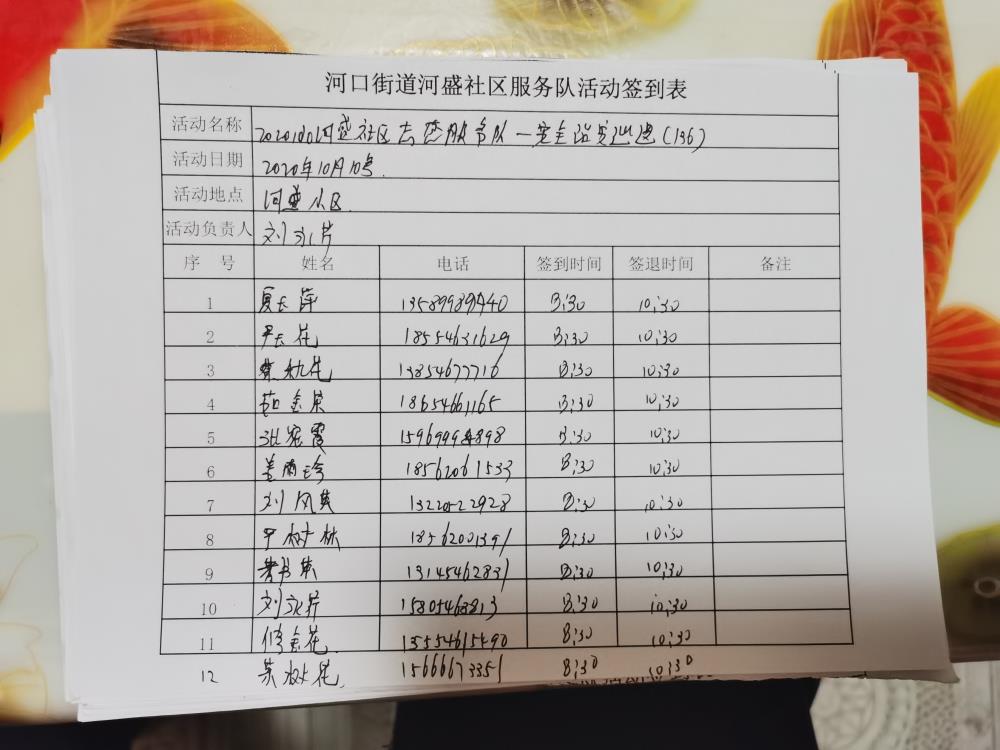 河口街道河盛社区服务队活动签到表
活动名称 20201010河盛社区志愿服务队一安全防范巡逻(136)
活动日期 2020年10月10号.
活动地点 河盛小区.
活动负责人 刘永芹
序 号 姓名 电话 签到时间 签退时间 备注
1 夏长萍 13589989440 8:30 10:30
2 尹长花 18554631629 8:30 10:30
3 秋花 13854677716 8:30 10:30
4 茹金荣 18654661165 8:30 10:30
5 张宪霞 15969994898 8:30 10:30
6 盖兰珍 18562061533 8:30 10:30
7 刘风英 13220522928 8:30 10:30
8 尹树林 18562001391 8:30 10:30
9 13145462831 8:30 10:30
10 刘永芹 15805468813 8:30 10:30
11 修金花. 13554615490 8:30 10:30
12 树花. 15666673351 8:30 10:30